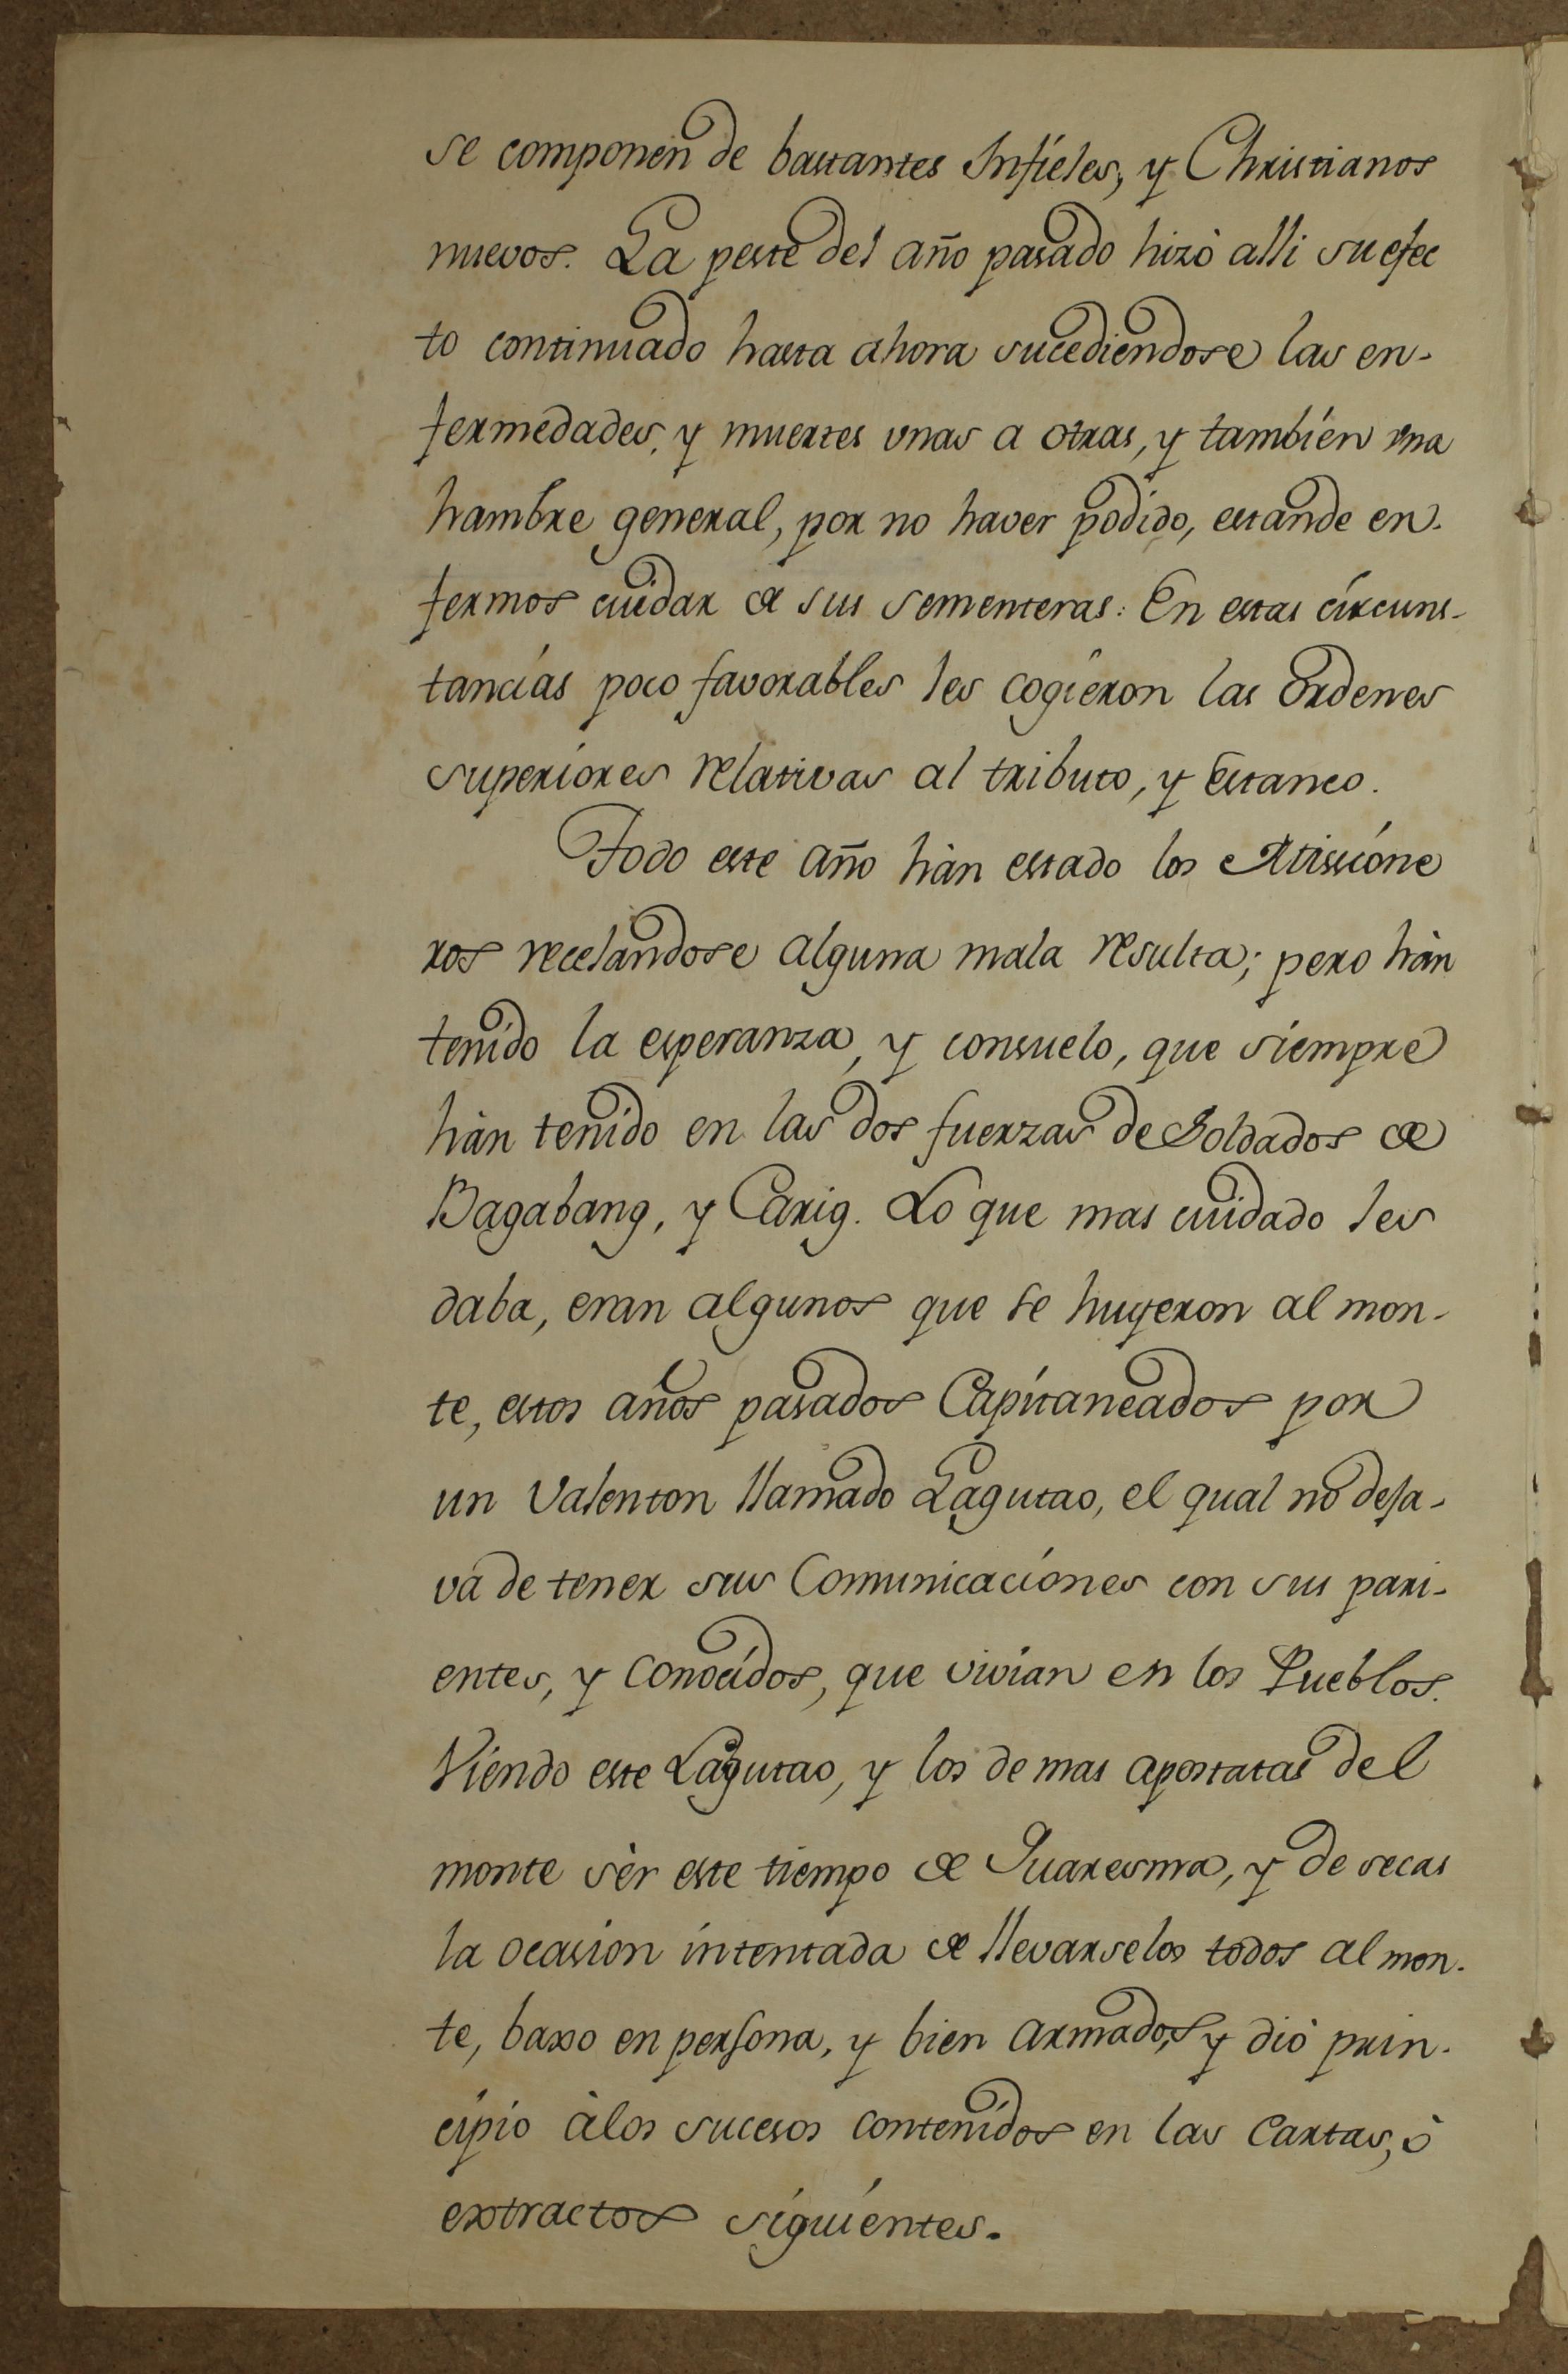 se componen de bastantes Infieles, y Christianos
nuevos. La peste del año pasado hizò alli su efec
to continuado hasta ahora sucediendose las en-
fermedades, y muertes unas a otras, y tambien una
hambre general, por no haver podido, estande en-
fermos cuidar de sus sementeras: En estas circuns-
tancias poco favorables les cogieron las Ordenes
superiores relativas al tributo, y Estanco.
Todo este año hàn estado los Missione
ros recelandose alguna mala resulta; pero hàn
tenido la esperanza, y consuelo, que siempre
hàn tenido en las dos fuerzas de Soldados de
Bagabang, y Carig. Lo que mas cuidado les
daba, eran algunos que se huyeron al mon-
te, estos años pasados Capitaneados por
un Valenton llamado Lagutao, el qual no deja-
va de tener sus Comunicaciones con sus pari-
entes, y conocidos, que vivian en los Pueblos.
Viendo este Lagutao, y los de mas apostatas del
monte sèr este tiempo de Quaresma, y de secas
la ocasion intentada de llevarselos todos al mon-
te, baxo en persona, y bien armados, y diò prin-
cipio àlos sucesos contenidos en las Cartas, ò
extractos siguientes.